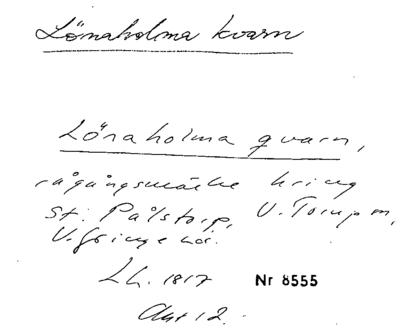 Lönaholma kvarn
Lönaholma qvarn,
rågångsmärke kring
St: Pålstorp, V. Torup m,
V. Gringe
Lh. 1817 Nr 8555
Akt 12.